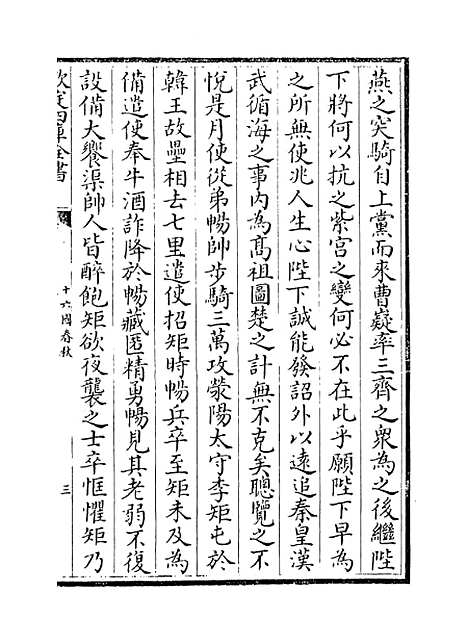 燕之突騎自上黨而來曹嶷率三齊之衆為之後繼陛
下將何以抗之紫宮之變何必不在此乎願陛下早為
之所無使兆人生心陛下誠能發詔外以遠追秦皇漢
武循海之事内為髙祖圖楚之計無不克矣聰覽之不
悅是月使從弟暢帥步騎三萬攻滎陽太守李矩屯於
韓王故壘相去七里遣使招矩時暢兵卒至矩未及為
備遣使奉牛酒詐降於暢藏匿精勇暢見其老弱不復
設備大饗渠帥人皆醉飽矩欲夜襲之士卒恇懼矩乃
欽定四庫全書
十六國春秋
三